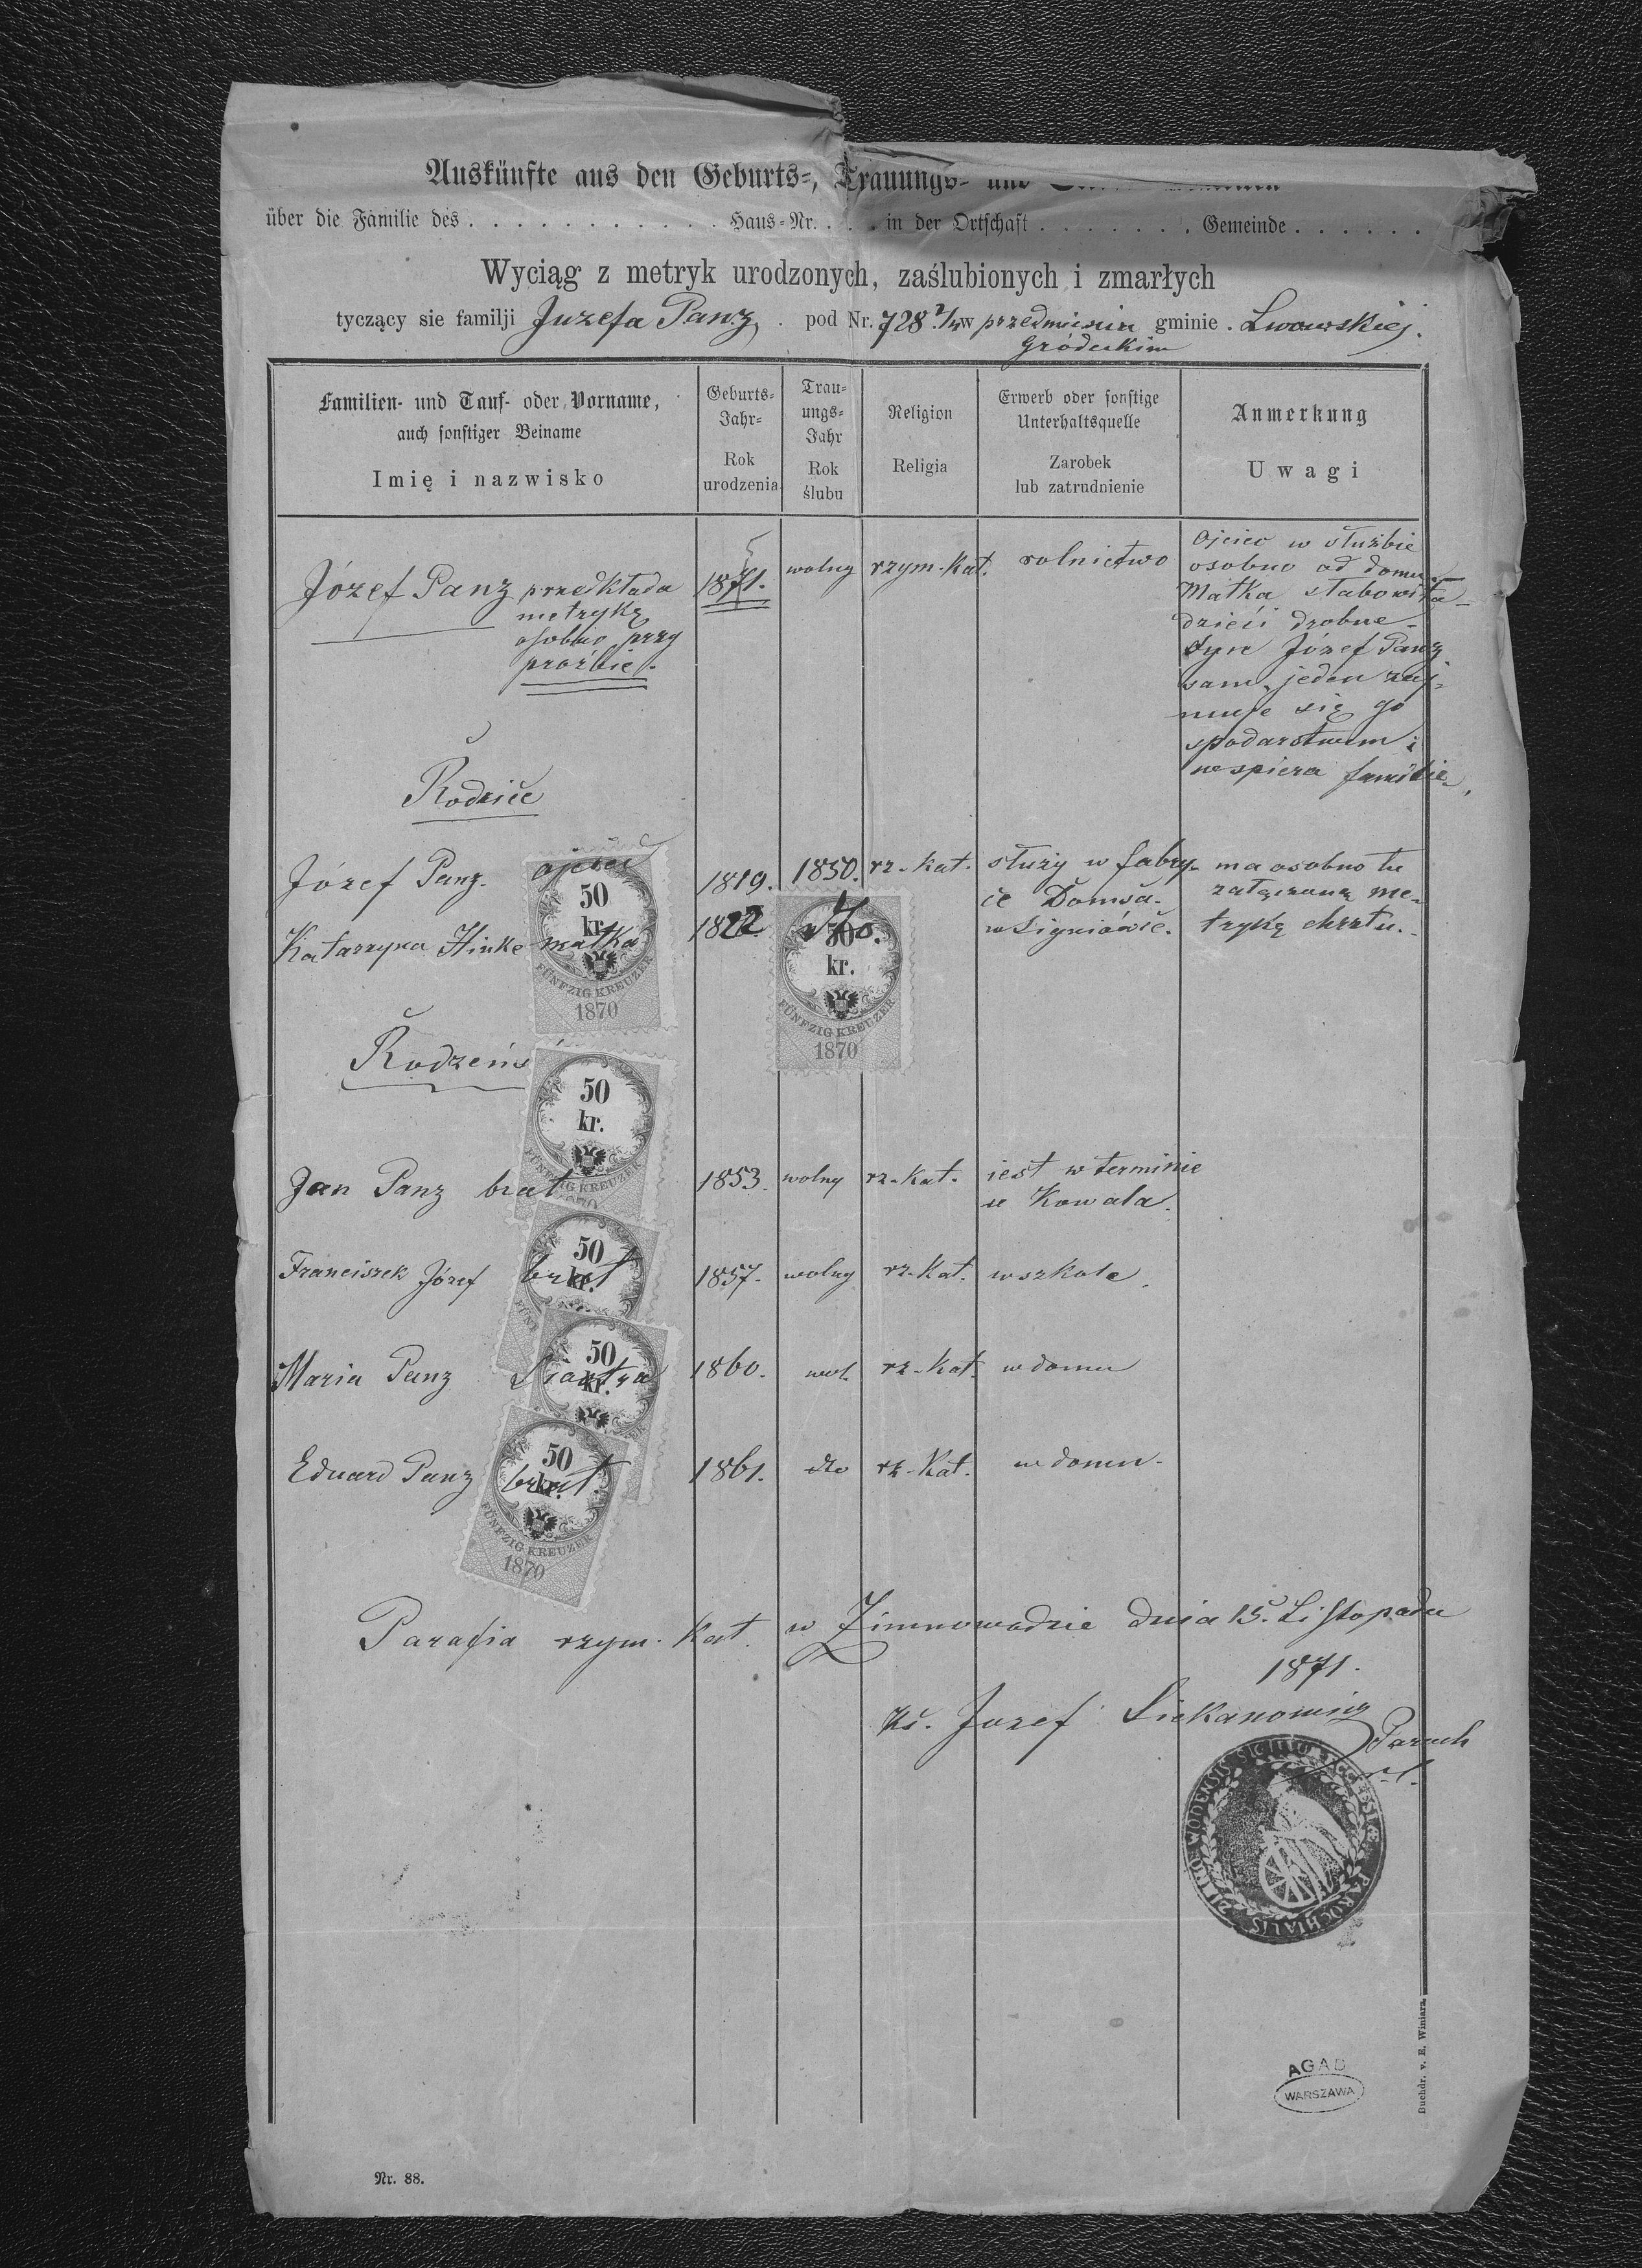 Auskünfte aus den Geburts-, Trauungs- und
über die Familie des . . . . . . . . . . . Haus-Nr. . . . in der Ortschaft . . . . . . . Gemeinde . . . . . .
Wyciąg z metryk urodzonych, zaślubionych i zmarłych
tyczący sie familji Juzefa Panz . pod Nr. 728 2/4 w przedmieściu gminie . Lwowskiej.
Gródeckim
Familien- und Tauf- oder Vorname,
auch sonstiger Beiname
Imię i nazwisko
Geburts-
Jahr-
Rok
urodzenia
Trau-
ungs-
Jahr
Rok
ślubu
Religion
Religia
Erwerb oder sonstige
Unterhaltsquelle
Zarobek
lub zatrudnienie
Anmerkung
Uwagi
Józef Panz przedkłada
metrykę
osobno przy
prośbie.
wolny rzym-Kat. rolnictwo
Ojciec w służbie
osobno od domu
Matka słabowita
dzieći drobne -
syn Józef Panz
sam jeden zaj-
muje się go
spodarstwem i
wspiera familie
Rodzice
Józef Panz. ojciec 1819. 1850. rz-kat. służy w fabry- ma osobno tu
załączoną me-
ce Domsa.
Katarzyna Hinke matka 1822 w Signiówce. trykę chrztu.
50
kr.
FÜNFZIG KREUZER
1870
50
kr.
FÜNFZIG KREUZER
1870
Rodzeńs
50
kr.
Jan Panz brat 1853. wolny rz-Kat. iest w terminie
u Kowala.
50
kr.
Franciszek Józef brat 1857. wolny rz-Kat. w szkole.
50
kr.
Maria Panz Siostra 1860. wol. rz-Kat. w domu
50
kr.
Eduard Panz brat. 1861. dto rz-Kat. w domu.
FÜNFZIG KREUZER
1870
Parafia rzym. Kat. w Zimnowodzie dnia 15. Listopada
1871.
Ks. Jozef Siekanowicz
Paroch
r.l.
SIGILLUM ECCLESIÆ PAROCHIALIS ZIMNOWODENSIS
AGAD
WARSZAWA
Buchdr. v. E. Winiarz.
Nr. 88.